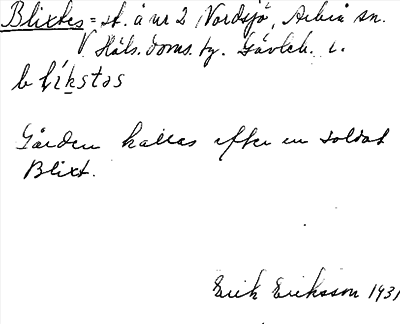 Blixtes = st. å nr 2 Nordsjö, Arbrå sn.
V Häls. doms. tg. Gävleb. l.
blikstəs
Gården kallas efter en soldat
Blixt.
Erik Eriksson 1931